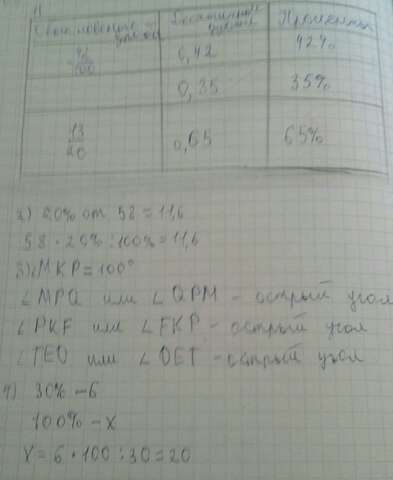 Обыкновенные дроби Десятичные дроби Проценты
42/100 0,42 42%
0,35 35%
13/20 0,65 65%
2) 20% от 58 = 11,6
58 · 20% : 100% = 11,6
3) ∠MKP = 100°
∠MPQ или ∠QPM - острый угол
∠PKF или ∠FKP - острый угол
∠TEO или ∠OET - острый угол
4) 30% - 6
100% - x
x = 6 · 100 : 30 = 20